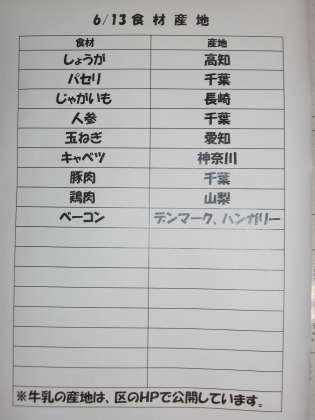 6/13食材産地
食材 産地
しょうが 高知
パセリ 千葉
じゃがいも 長崎
人参 千葉
玉ねぎ 愛知
キャベツ 神奈川
豚肉 千葉
鶏肉 山梨
ベーコン デンマーク、ハンガリー
※牛乳の産地は、区のHPで公開しています。